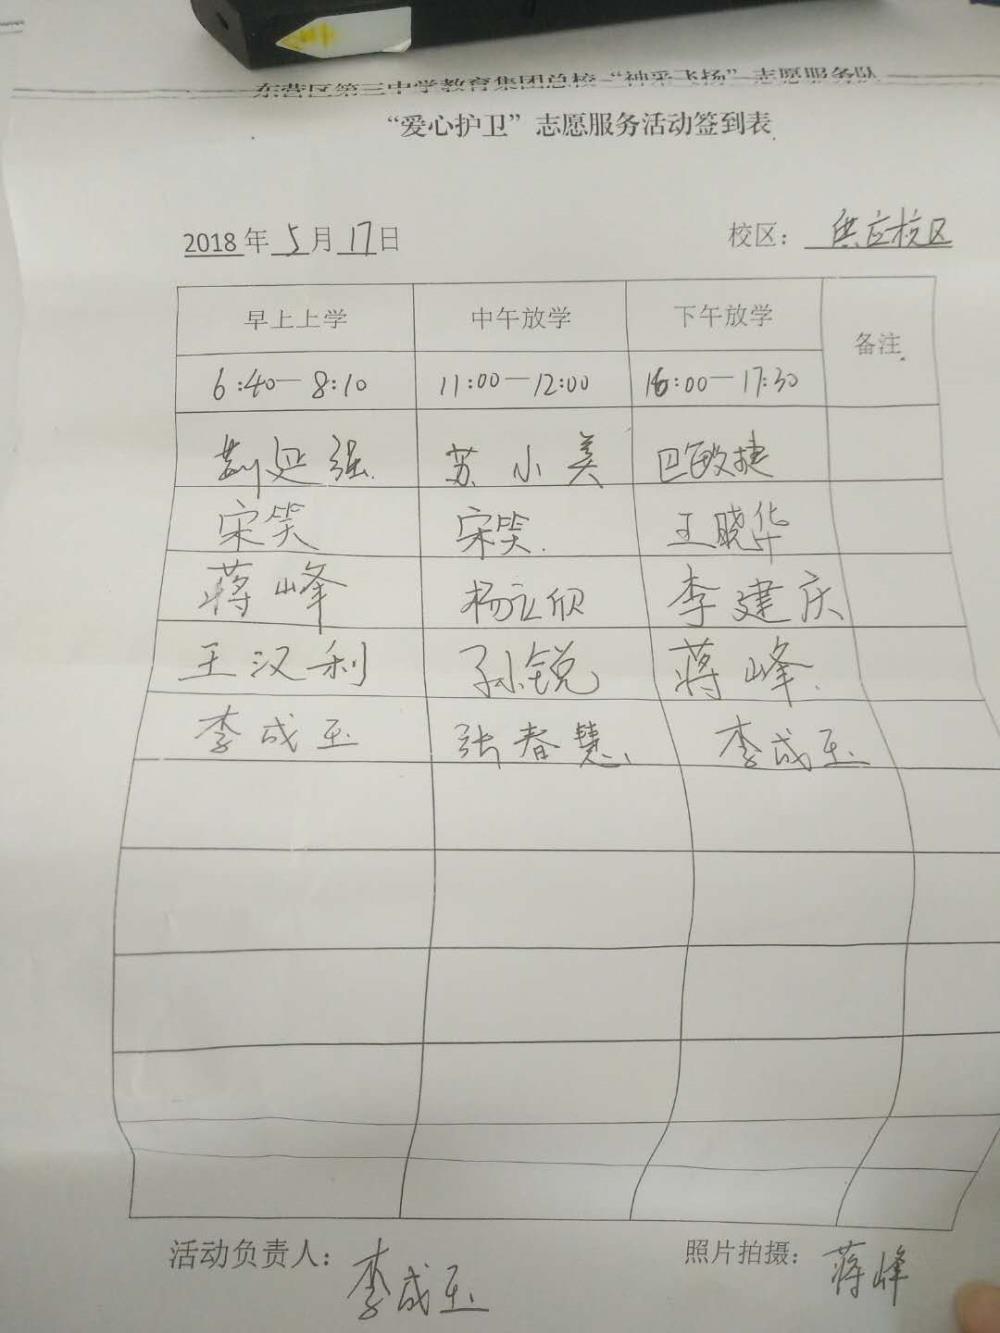 东营区第三中学教育集团总校“神采飞扬”志愿服务队
“爱心护卫”志愿服务活动签到表
2018年5月17日 校区：供应校区
早上上学 中午放学 下午放学 备注
6:40—8:10 11:00—12:00 16:00—17:30
苏小美 巴敏捷
宋笑 宋笑 王晓华
蒋峰 杨立欣 李建庆
王汉利 孙锐 蒋峰
李成玉 张春慧 李成玉
活动负责人：李成玉 照片拍摄：蒋峰